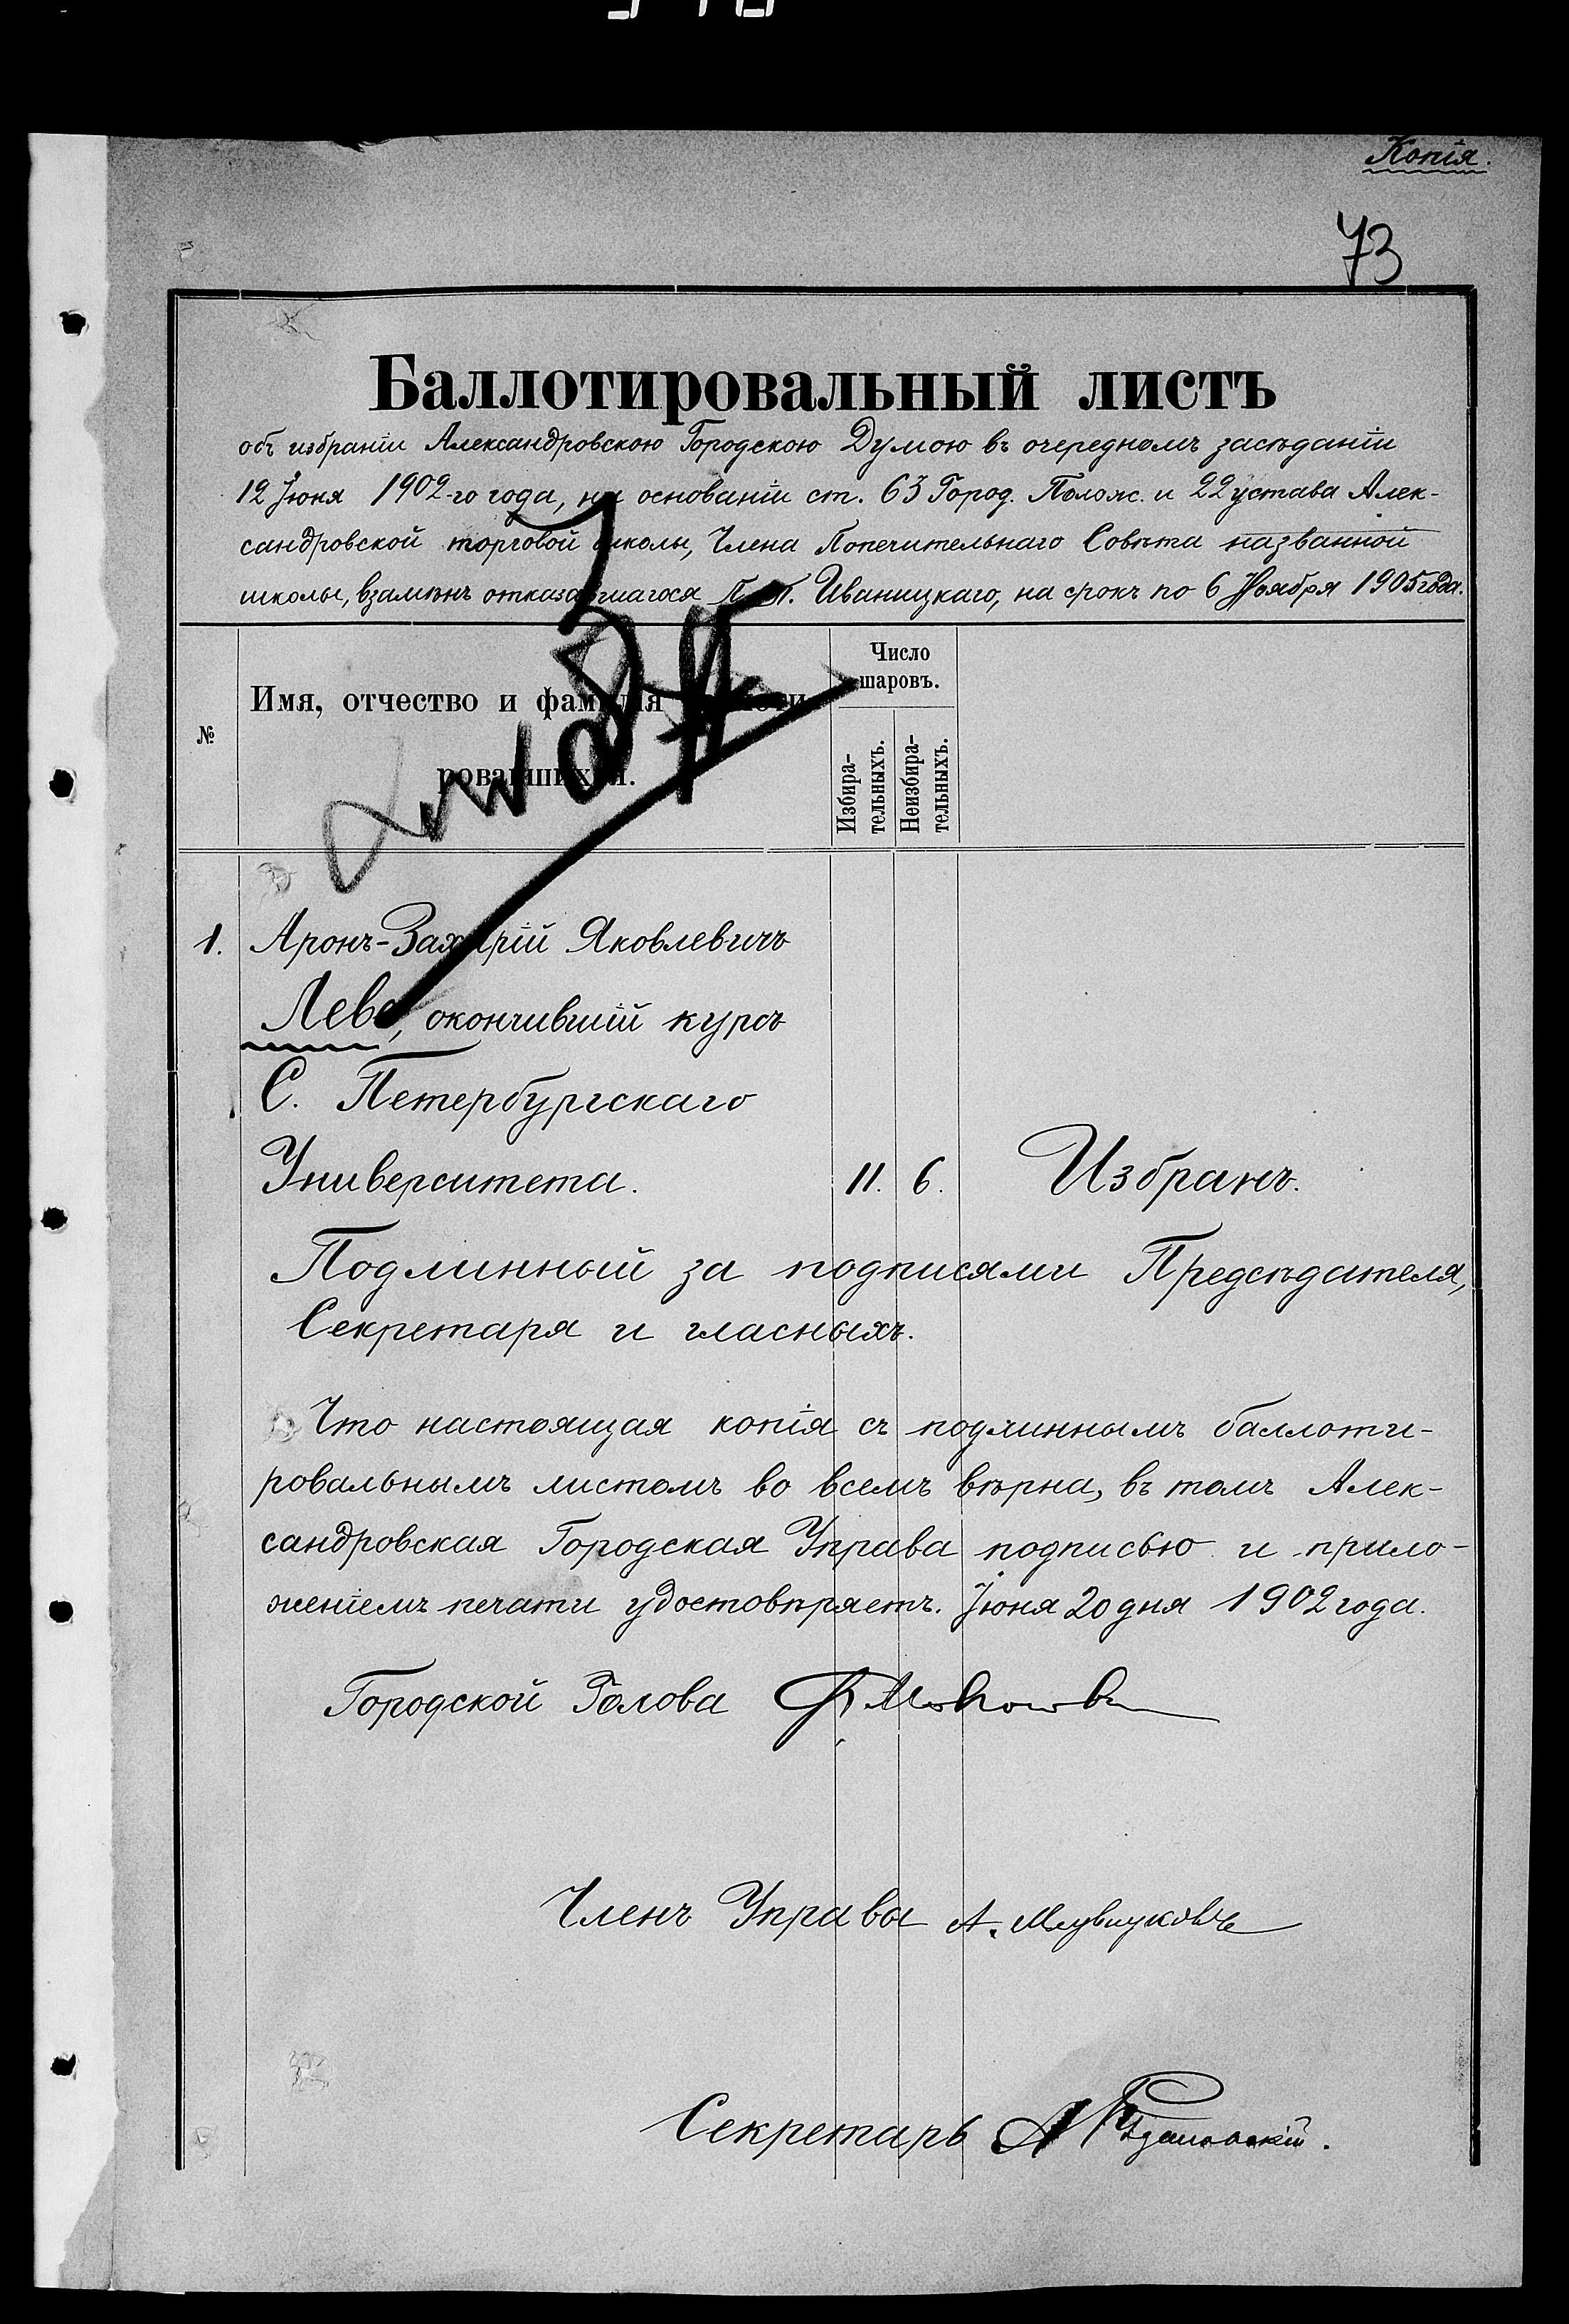 Копія.
73
Баллотировальный листъ
объ избраніи Александровскою Городскою Думою въ очередномъ засѣданіи
12 Іюня 1902-го года, на основаніи ст. 63 Город. Полож. и 22 устава Алек-
сандровской торговой школы, Члена Попечительнаго Совѣта названной
школы, взамѣнъ отказавшагося П. Иваницкаго, на срокъ по 6 Ноября 1905 года.
№
Имя, отчество и фамилія баллоти-
ровавшихся.
Число
шаровъ.
Избира-
тельныхъ.
Неизбира-
тельныхъ.
1. Аронъ-Захарій Яковлевичъ
окончившій курсъ
С. Петербургскаго
Университета. 11. 6. Избранъ.
Подлинный за подписями Предсѣдателя,
Секретаря и гласныхъ.
Что настоящая копія съ подлиннымъ баллоти-
ровальнымъ листомъ во всемъ вѣрна, въ томъ Алек-
сандровская Городская Управа подписью и прило-
женіемъ печати удостовѣряетъ. Іюня 20 дня 1902 года.
Городской Голова
Членъ Управы А.
Секретарь А